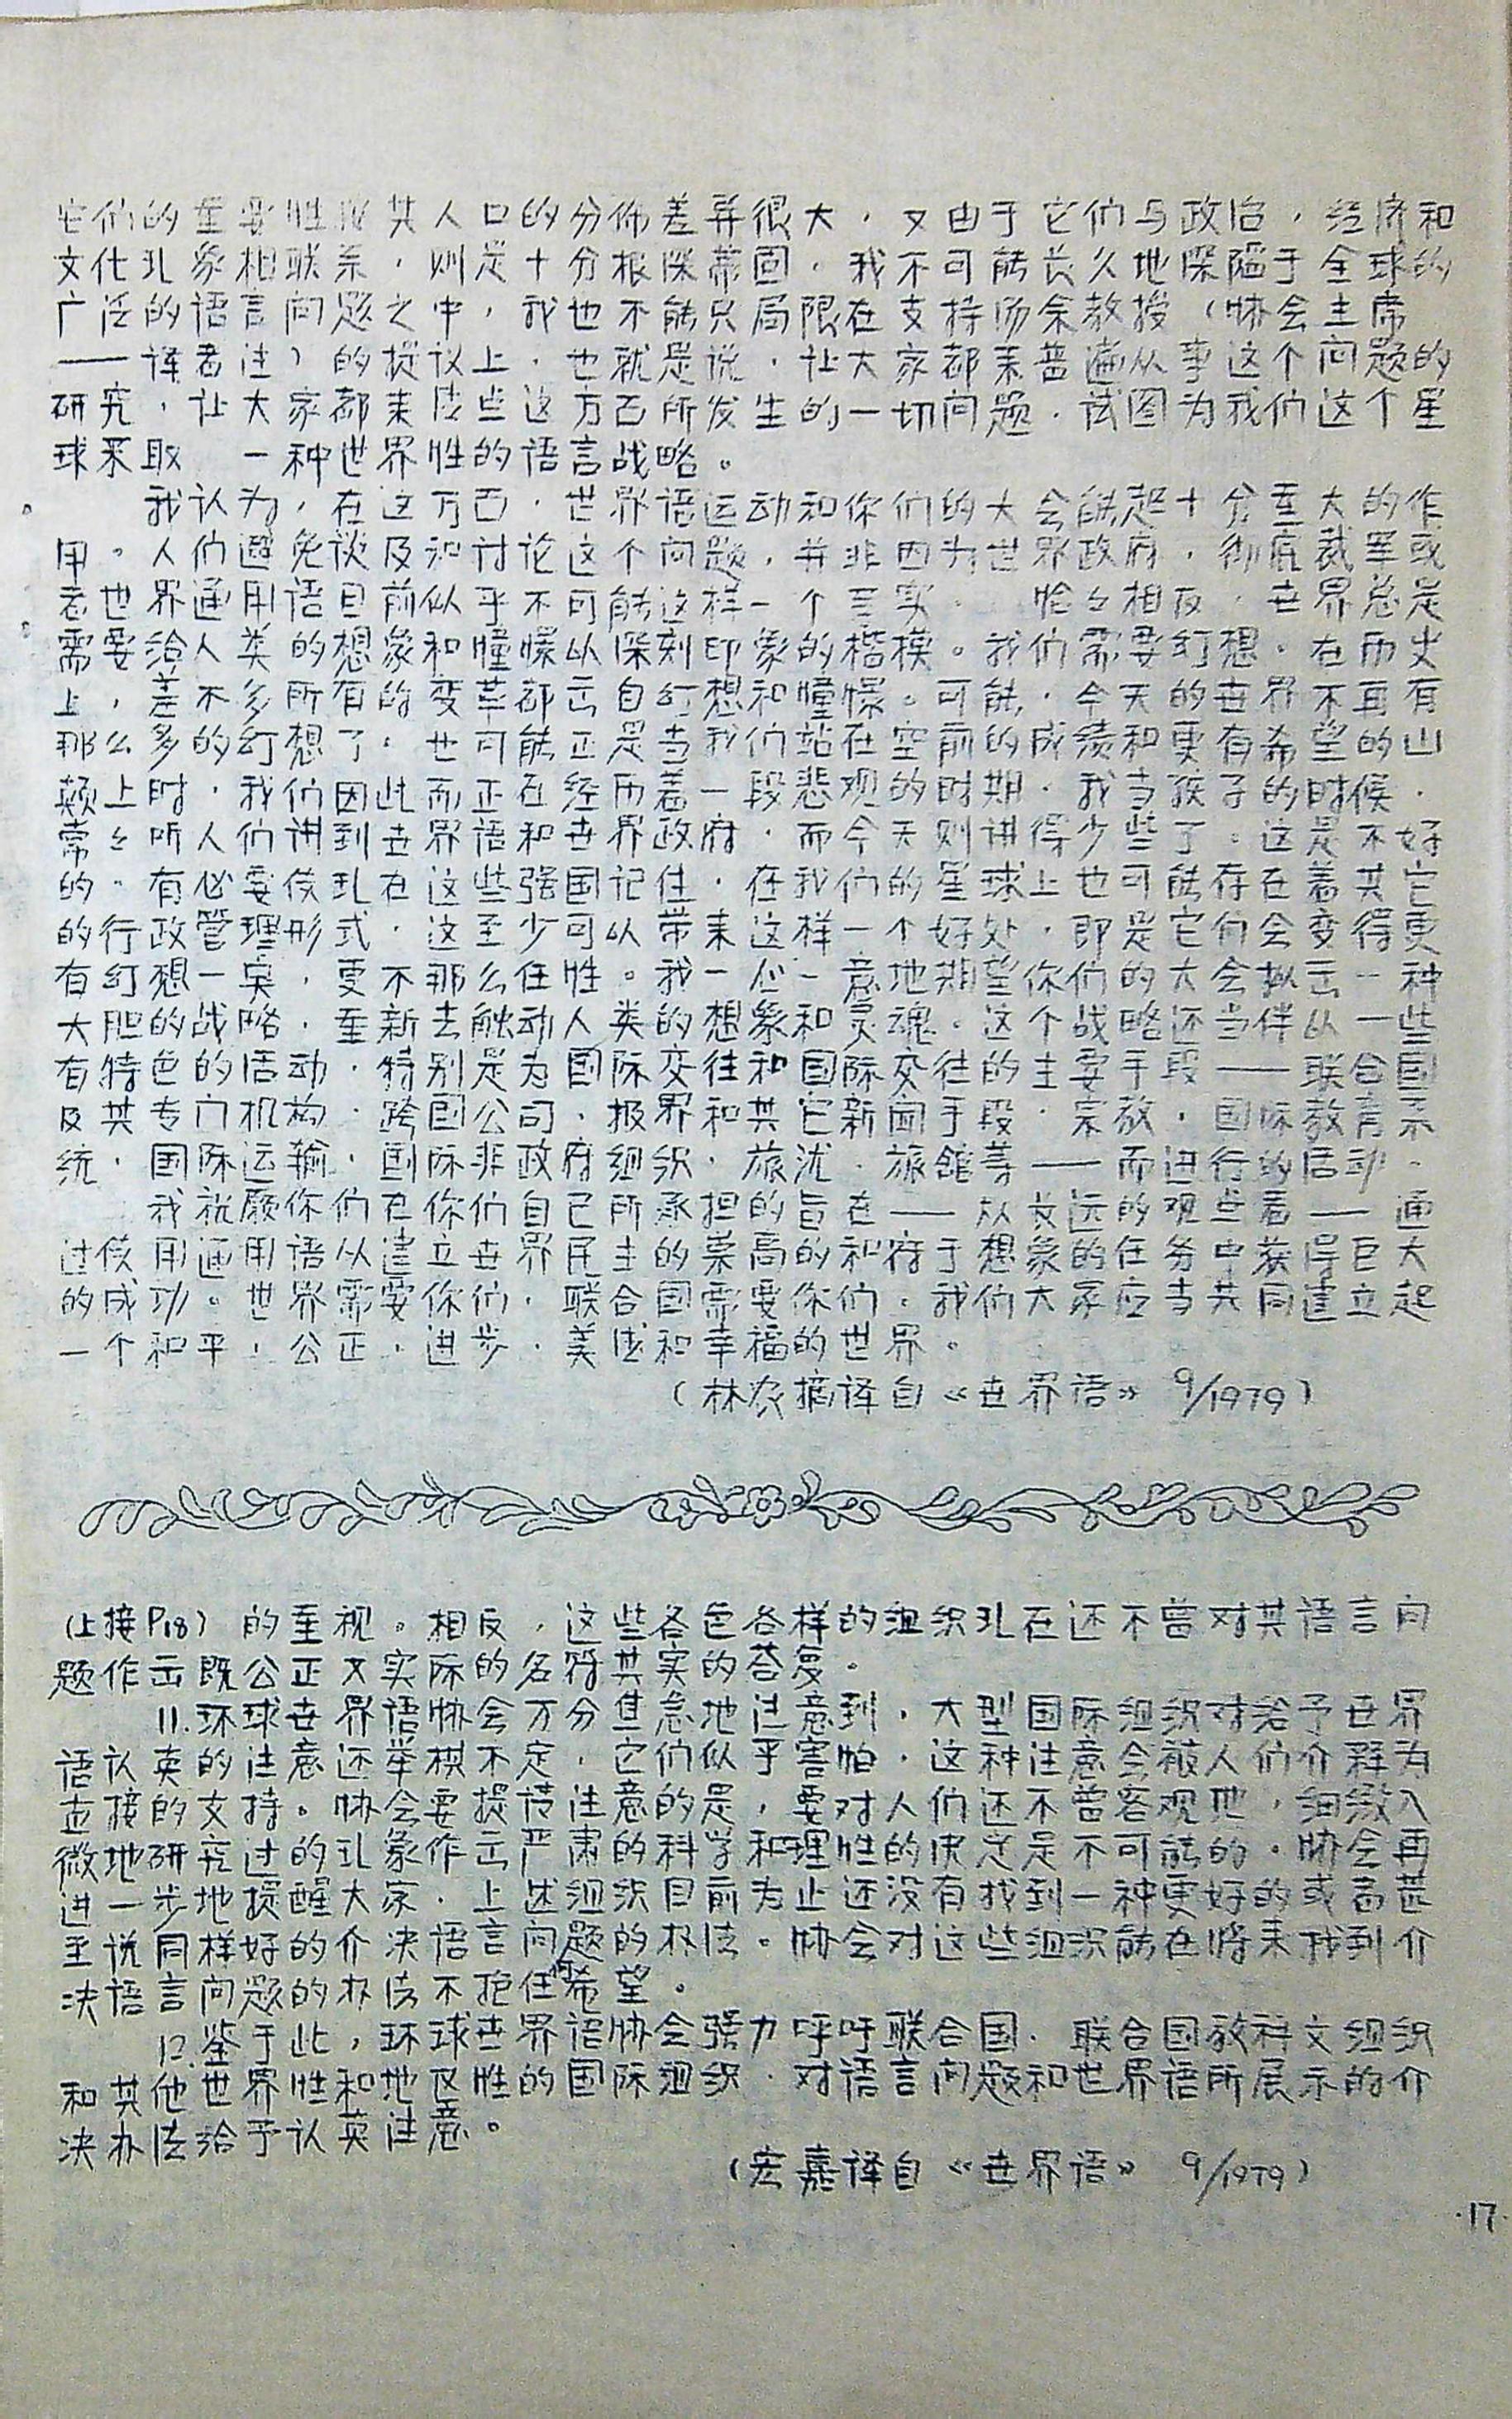 它们的重要性及其人口的分佈差异很大，又由于它们与政治，经济和
文化现象相联系，则是十分根深蒂固，我不可能长久地深陷于全球的
广泛的语言问题之中，我也不能只局限在支持汤余教授（协会主席
——译者注）的提议上，也就是说，让大家都来普遍从事这个问题的
研究，让大家都来这方面所发生的一切问题，试图为我们这个星
球采取 一种世界性的语言战略。
我认为，在这方面，世界语运动和你们的大会能起十分重大的作
用。人们避免谈及和讨论这个问题，并非因为世界政府，彻底裁军或
者世界通用语目前似乎不可能这样一个事实， 恰々相反，世界总是
需要给人类的想象和憧憬以深刻印象的楷模。我们需要幻想。在历史
上，差不多所有的变革都出自幻想和憧憬。可能，今天的世界不再有
那么多的幻想了，也可能正是当我们站在空前的成绩和更有希望的山
颠上时，我们因此而正在经历着一段悲观的时期。我当孩子的时候，
常々听人们讲到世界语和世界政府，而今天则讲得少些了。这是不好
的。有必要使现在这些强国记住，在我们的星球上也可能存在着其它
的行政管理形式，这至少可以带来这样一个好处，即是它们会变得更
有幻想一点，更不那么任性。我一心一意地期望你们的大会拟出一种
大胆的战略，重新去触动人类的想象和灵魂。这个战略还当伴以一些
有特色的活动，特别是为国际交往和国际交往的主要手段——联合国
及其专门机构，跨国公司，报界和其它新闻手段，宗教，国际教育系
统，国际运输，国际非政府组织，旅游，旅馆等——而进行的活动。
我祝愿你们在你们自己所承担的旨在——从长远的观点看——通
过使用通用语以建立世界民主的崇高的和符于想象的任务中获得巨大
的成功。世界需要你们，联合国需要你们。我们大家应当共同建立起
一个和平，公正，进步，美好和幸福的世界。
（林农摘译自《世界语》 9/1979）
（上接P18）的重视。相反，这些各色各样的组织现在还不曾对其语言问
题作出既公正又实际的名符其实的答复。
11.环球世界语协会万分焦急地注意到，大型国际组织对给予世界
语认真的注意还举棋不定，它们似乎害怕，这种注意会被人们介释为
直接的支持。协会要提请注意的是，要对人们还不曾客观地，细致入
微地研究过的现象作出严肃的科学和理性的决定是不可能的。协会再
进一步地提醒大家，上述组织目前为止还没有找到一种更好的或者甚
至说同样好的介决语言问题的办法。协会对这些组织能在将来找到介
决语言问题的办法不抱任何希望。
12.鉴于此，环球世界语协会强力呼吁联合国，联合国教科文组织
和其他世界性和地区性的国际组织，对语言问题和世界语所展示的介
决办法给予认真注意。
（宏嘉译自《世界语》 9/1979）
·17·